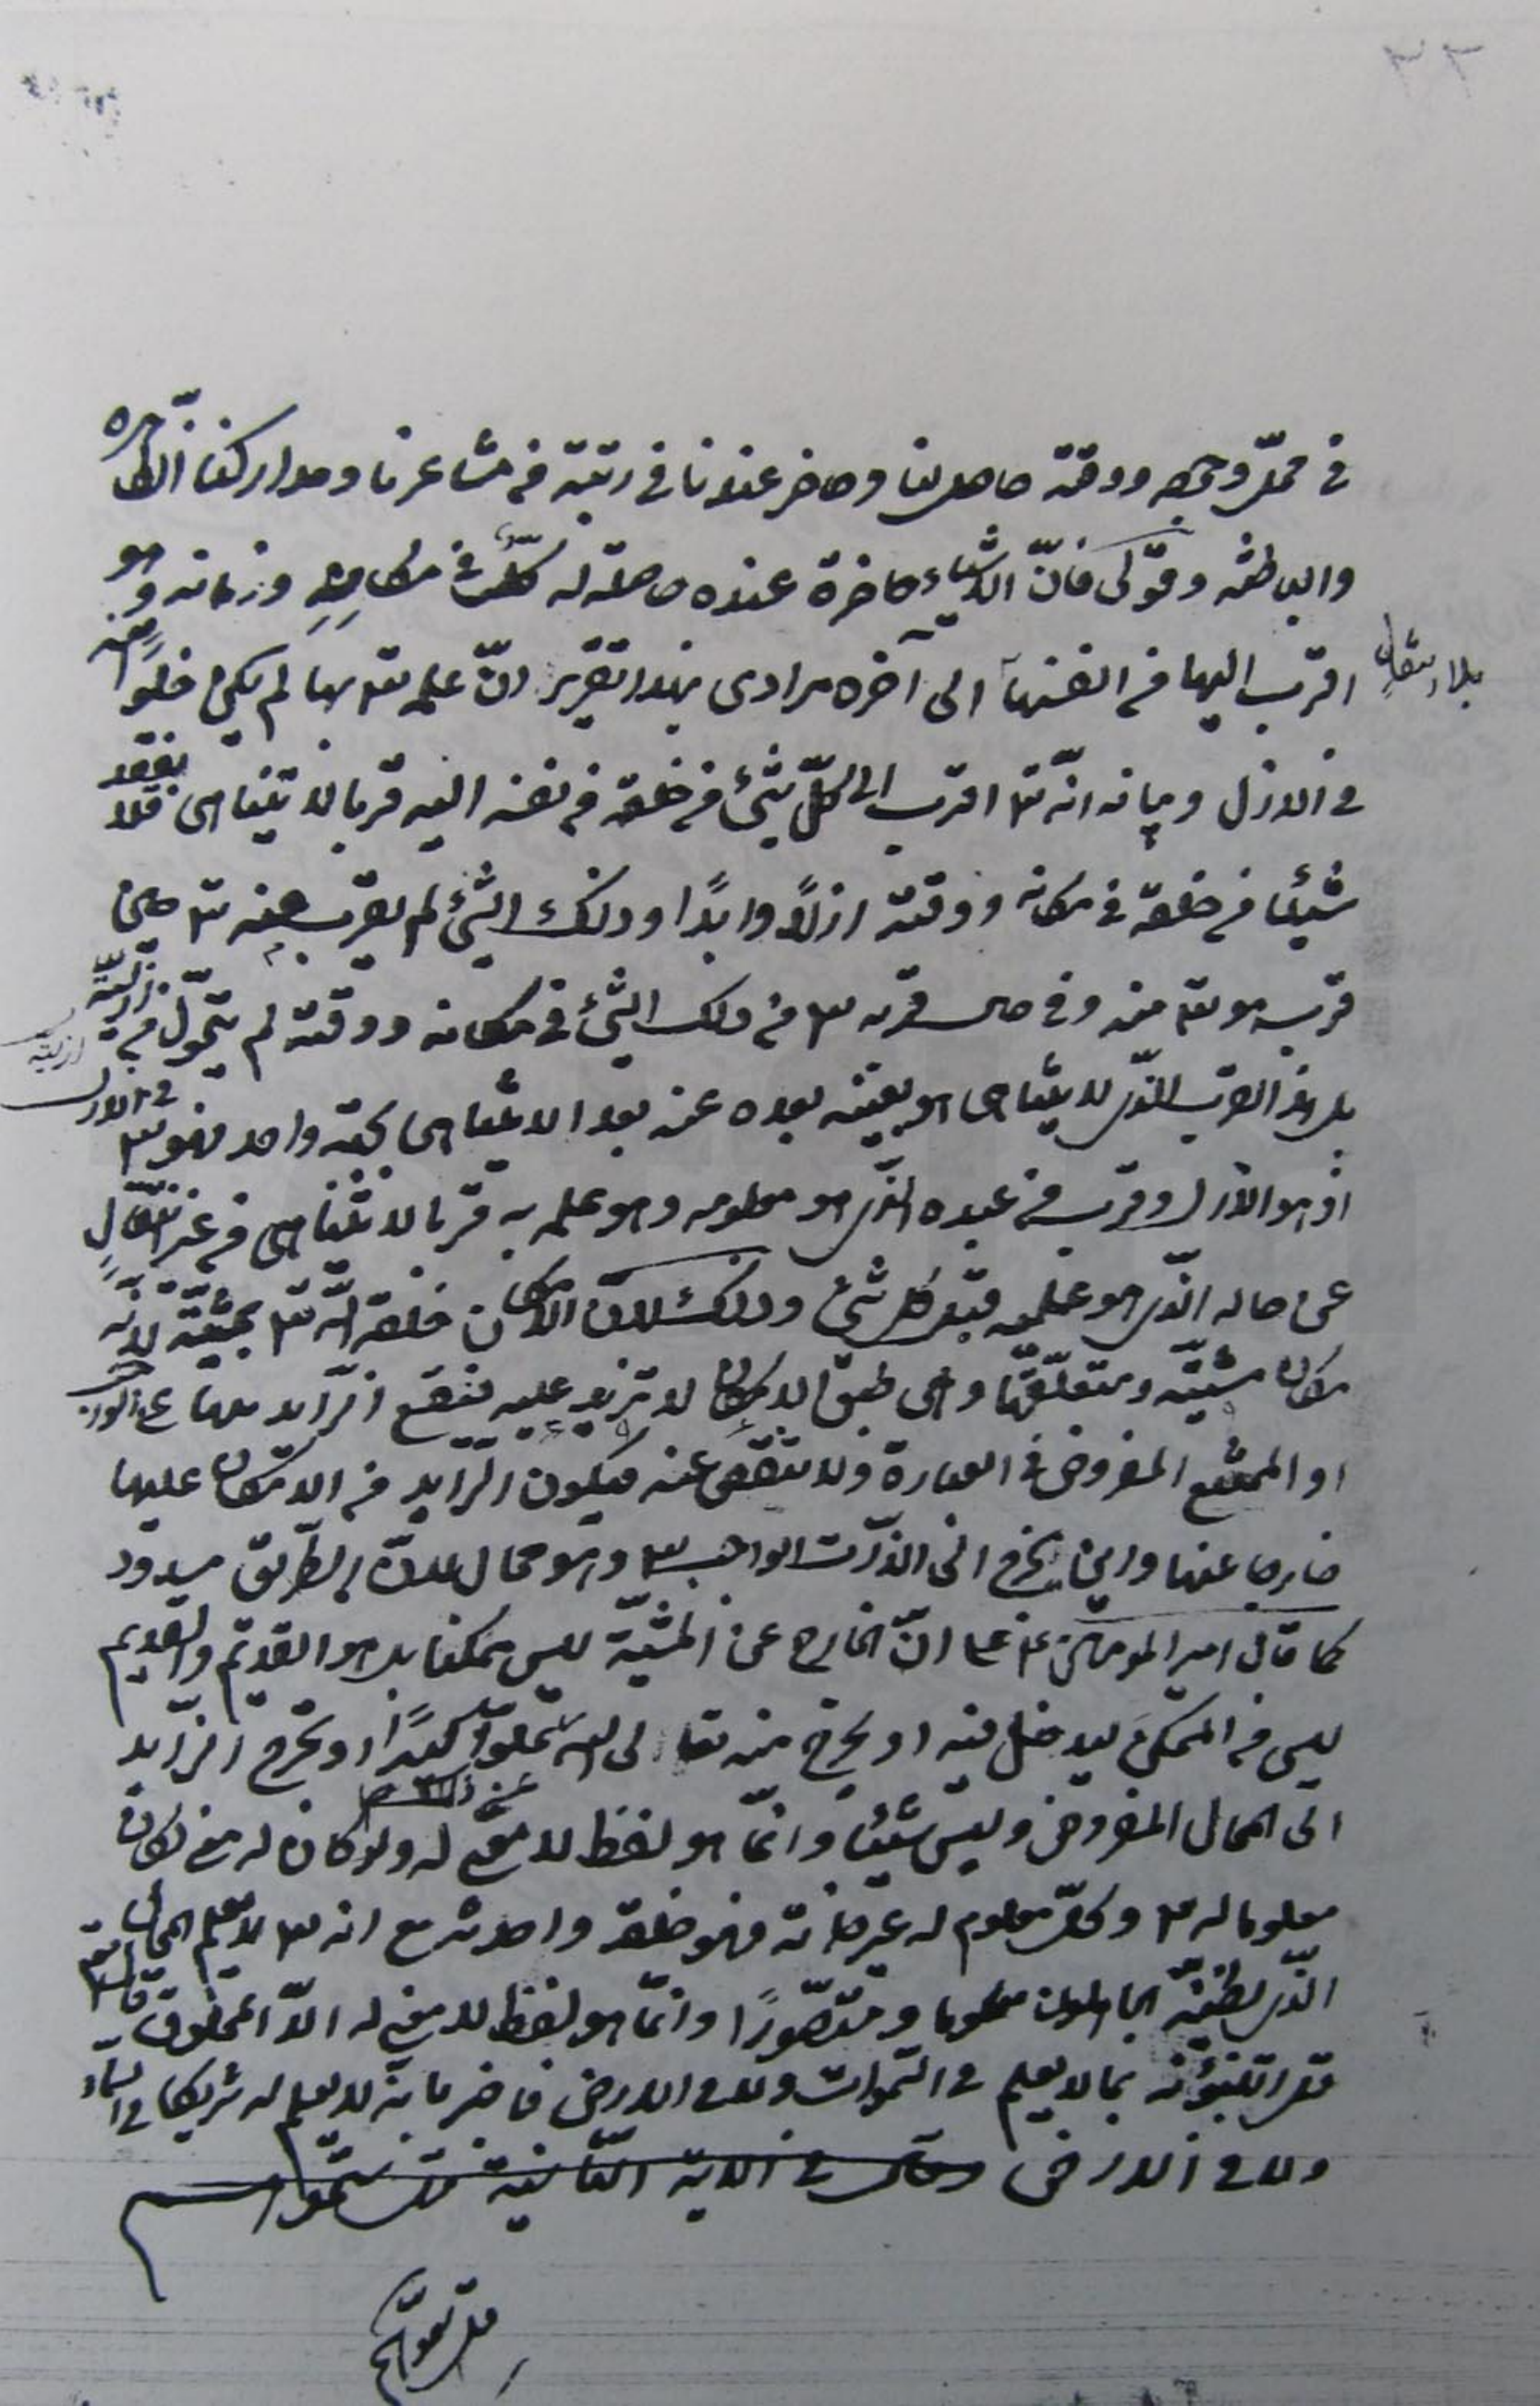 ٣٣
في محلّ وجهه ووقته حاصل لنا وحاضر عندنا في رتبته من مشاعرنا ومداركنا الظاهره
والباطنه وقولى فانّ الاشياء حاضرة عنده حاصلة له كلّ في مكانه وزمانه وهو
اقرب اليها من انفسها الى آخره مرادى بهذا تقرير انّ علمه تع بها لم يكن خلوا منه
بلا انتقال
في الازل وبيانه انّه تع اقرب الى كلّ شئ من خلقه من نفسه اليه قربا لا يتناهى فلا يفقد
شيئا من خلقه في مكانه ووقته ازلاً وابدًا وذلك الشئ لم يقرب منه تع حين
قرب هو تع منه وفي حال قربه تع من ذلك الشئ في مكانه ووقته لم يتحوّل من ازليّته
ازليته
بل هذا القرب الذى لا يتناهى هو بعينه بعده عنه بعدا لا يتناهى بجهة واحدة فهو تع في الازل
اذ هو الازل وقرب من عبده الذى هو معلومه وهو علمه به قربا لا يتناهى من غير انتقالٍ
عن حاله الذى هو عليه قبل كل شئ وذلك لانّ الامكان خلقه الله تع بمشيّته لانّه
مكان مشيّته ومتعلّقها وهي طبق الامكان لا تزيد عليه فيقع الزّايد منها على الواجب
او الممتنع المفروض في العبارة ولا تنقص عنه فيكون الزّايد من الامكان عليها
خارجا عنها واين يخرج الى الذّات الواجب تع وهو محال لانّ الطّريق مسدود
كما قال امير المومنين ع مع انّ الخارج عن المشيّة ليس ممكنا بل هو القديم والقديم
ليس من الممكن ليدخل فيه او يخرج منه تعالى الله علوّا كبيرًا او يخرج الزّايد
عن ذلك ص
الى المحال المفروض وليس شيئا وانّما هو لفظ لا معنى له ولو كان له معنى لكان
معلوما له تع وكلّ معلوم له غير ذاته فهو خلقه واحدثه مع انه تع لا يعلم المحال
الذى يظنّه الجاهلون معلوما ومتصّورًا وانّما هو لفظ لا معنى له الّا المخلوق قال تع
قل اتنبّؤنه بما لا يعلم في السّموات ولا في الارض فاخبر بانه لا يعلم له شريكا في السماء
ولا في الارض وقال في الاية الثّانية قل سمّوهم
قل سمّوهم